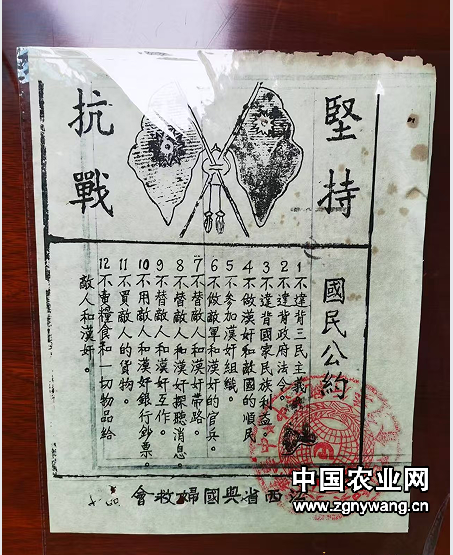 堅持
抗戰
國民公約
1 不違背三民主義
2 不違背政府法令。
3 不違背國家民族利益
4 不做漢奸和敵國的順民
5 不參加漢奸組織。
6 不做敵軍和漢奸的官兵。
7 不替敵人和漢奸帶路。
8 不替敵人和漢奸探聽消息。
9 不替敵人和漢奸工作。
10 不用敵人和漢奸銀行鈔票。
11 不買敵人的貨物。
12 不賣糧食和一切物品給
敵人和漢奸。
江西省興國婦救會
中国农业网
www.zgnywang.cn